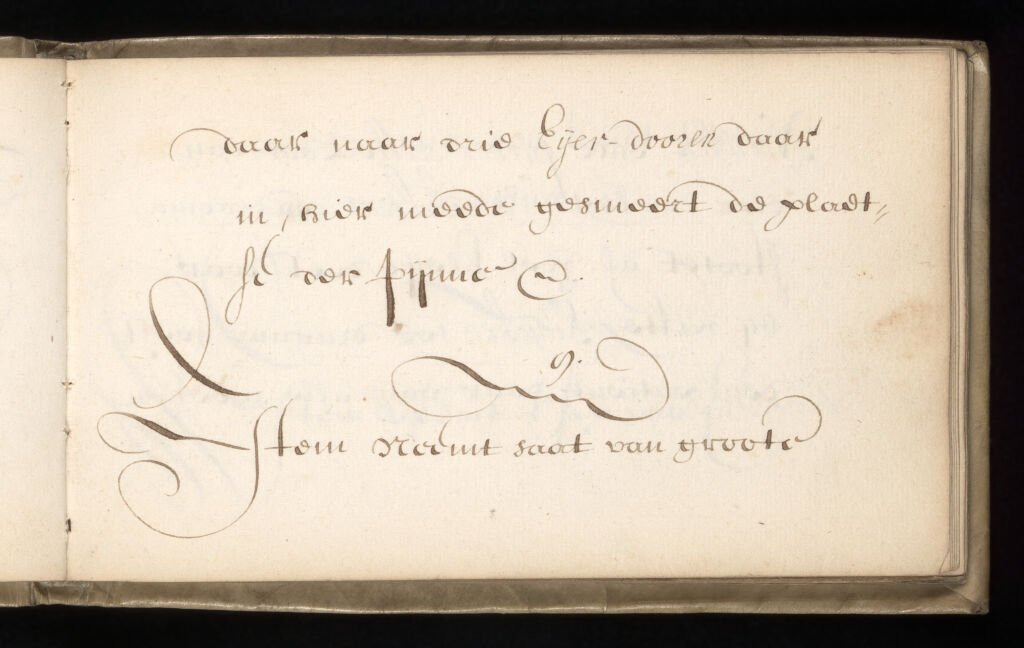 daar naar drie Eyer-dooren daar
in, hier meede gesmeert de plaet-
se der pijnne
9.
Item Neemt saat van groote